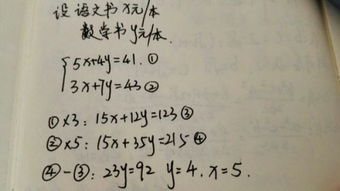 设语文书x元/本
数学书y元/本.
5x+4y=41. ①
3x+7y=43 ②
①×3: 15x+12y=123 ③
②×5: 15x+35y=215 ④
④-③: 23y=92 y=4. x=5.